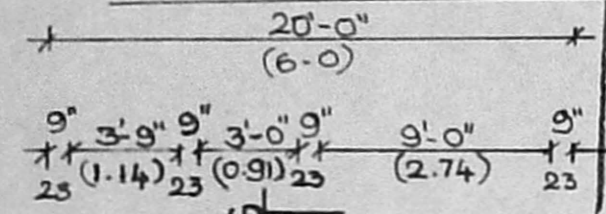 20'-0"
(6-0)
9" 3'-9" 9" 3'-0" 9" 9'-0" 9"
23 (1.14) 23 (0.91) 23 (2.74) 23